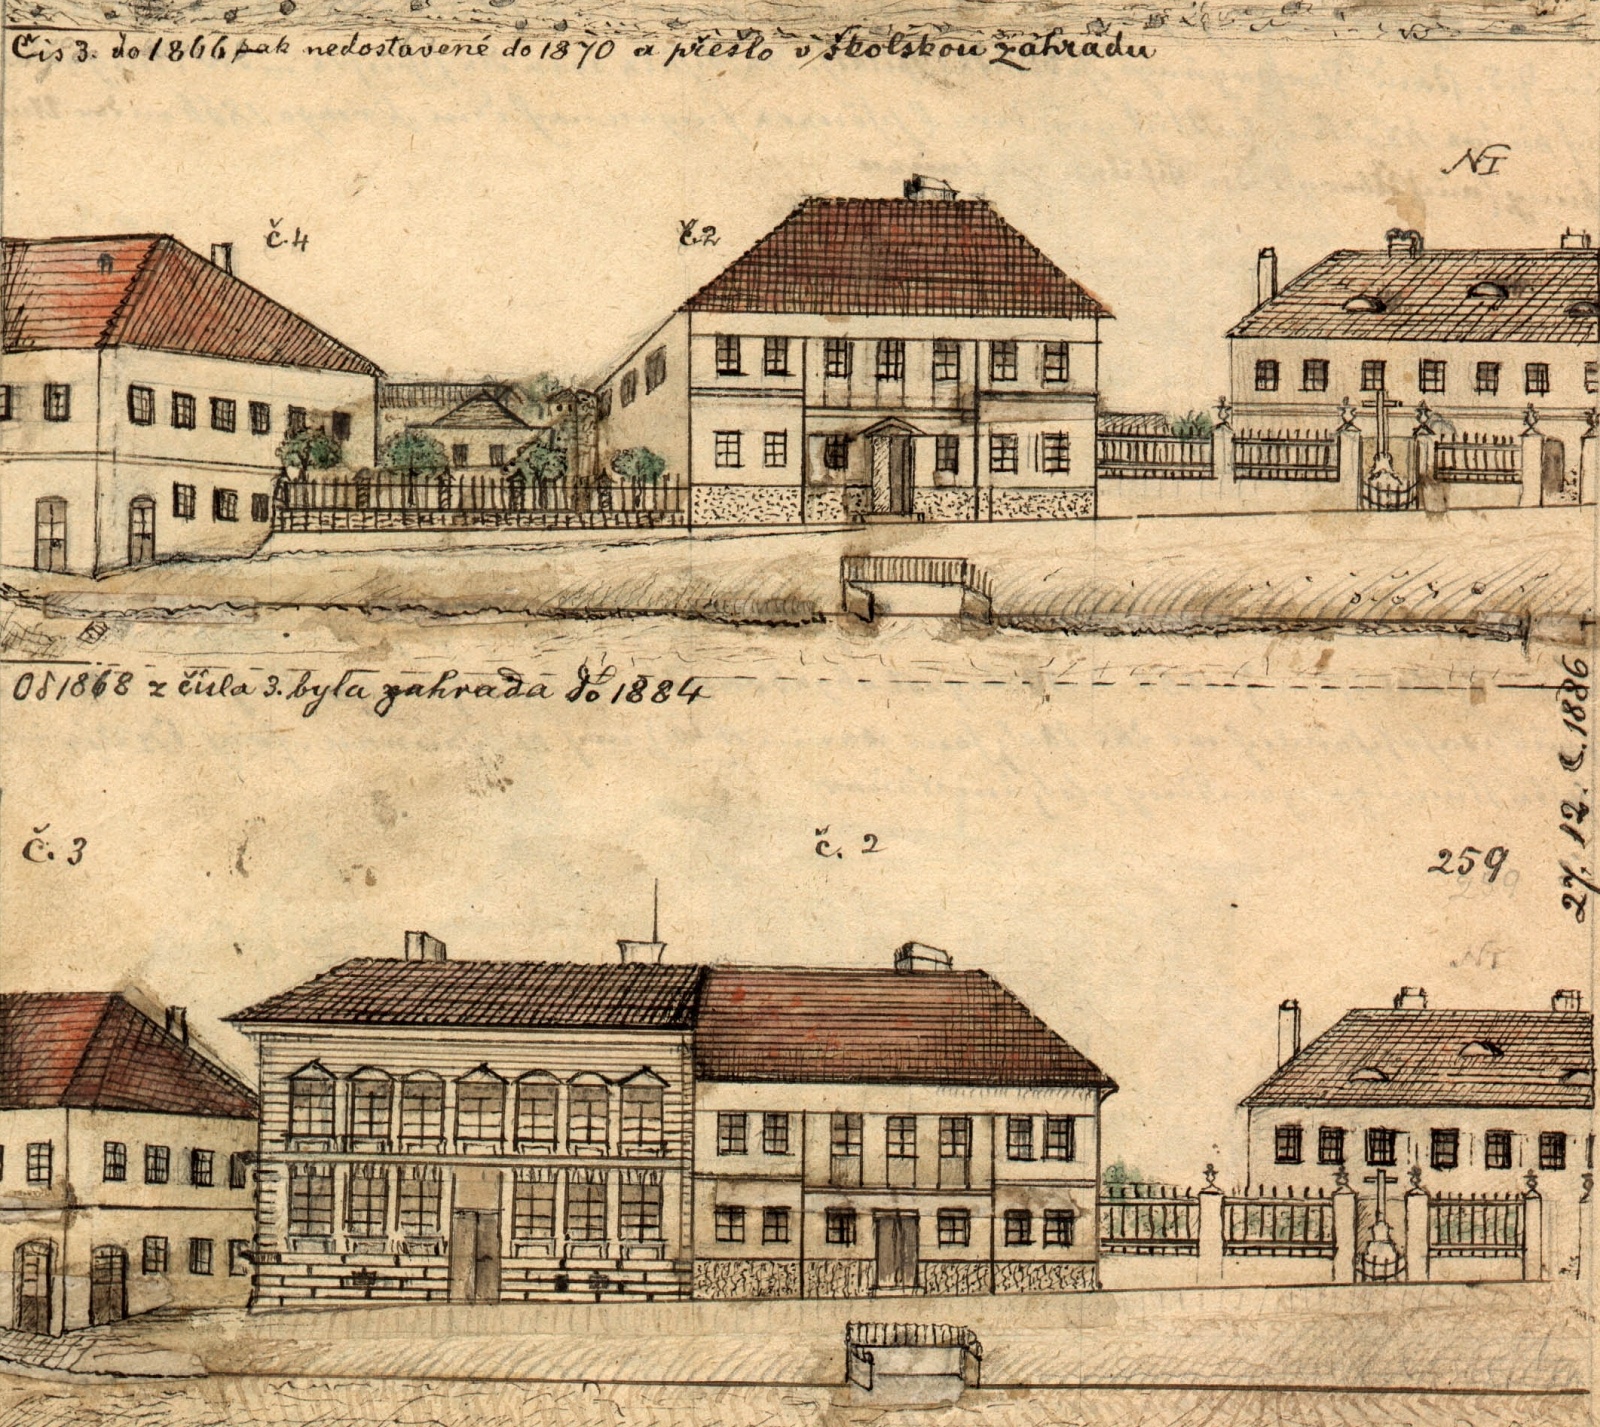 Čis 3. do 1866 pak nedostavené do 1870 a přešlo v školskou zahradu
NI
č.4
č.2
Od 1868 z čísla 3. byla zahrada do 1884
27. 12. 1886
č. 3
č. 2
259